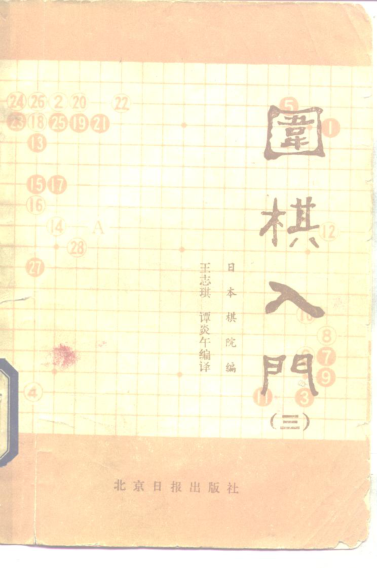 圍棋入門
(三)
日本棋院 编
王志琪 谭炎午编译
24 26 2 20 22
18 25 19 21
13
15 17
16
14 A
28
27
4
5
1
12
8
7
9
11 3
北京日报出版社